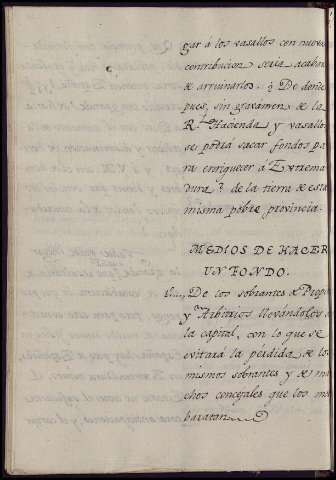 gar á los vasallos con nueva
contribucion seria acabar
de arruinarlos. ¿De donde
pues, sin gravamen de la
Rl. Hacienda y vasallos
se podrá sacar fondos pa
ra enriquecer á Extrema
dura? de la tierra de esta
misma pobre provincia.
MEDIOS DE HACER
UN FONDO.
De los sobrantes de Propi
y Arbitrios llevandolos á
la capital, con lo que se
evitará la pérdida de los
mismos sobrantes y de mu
chos concejales que los mal
baratan